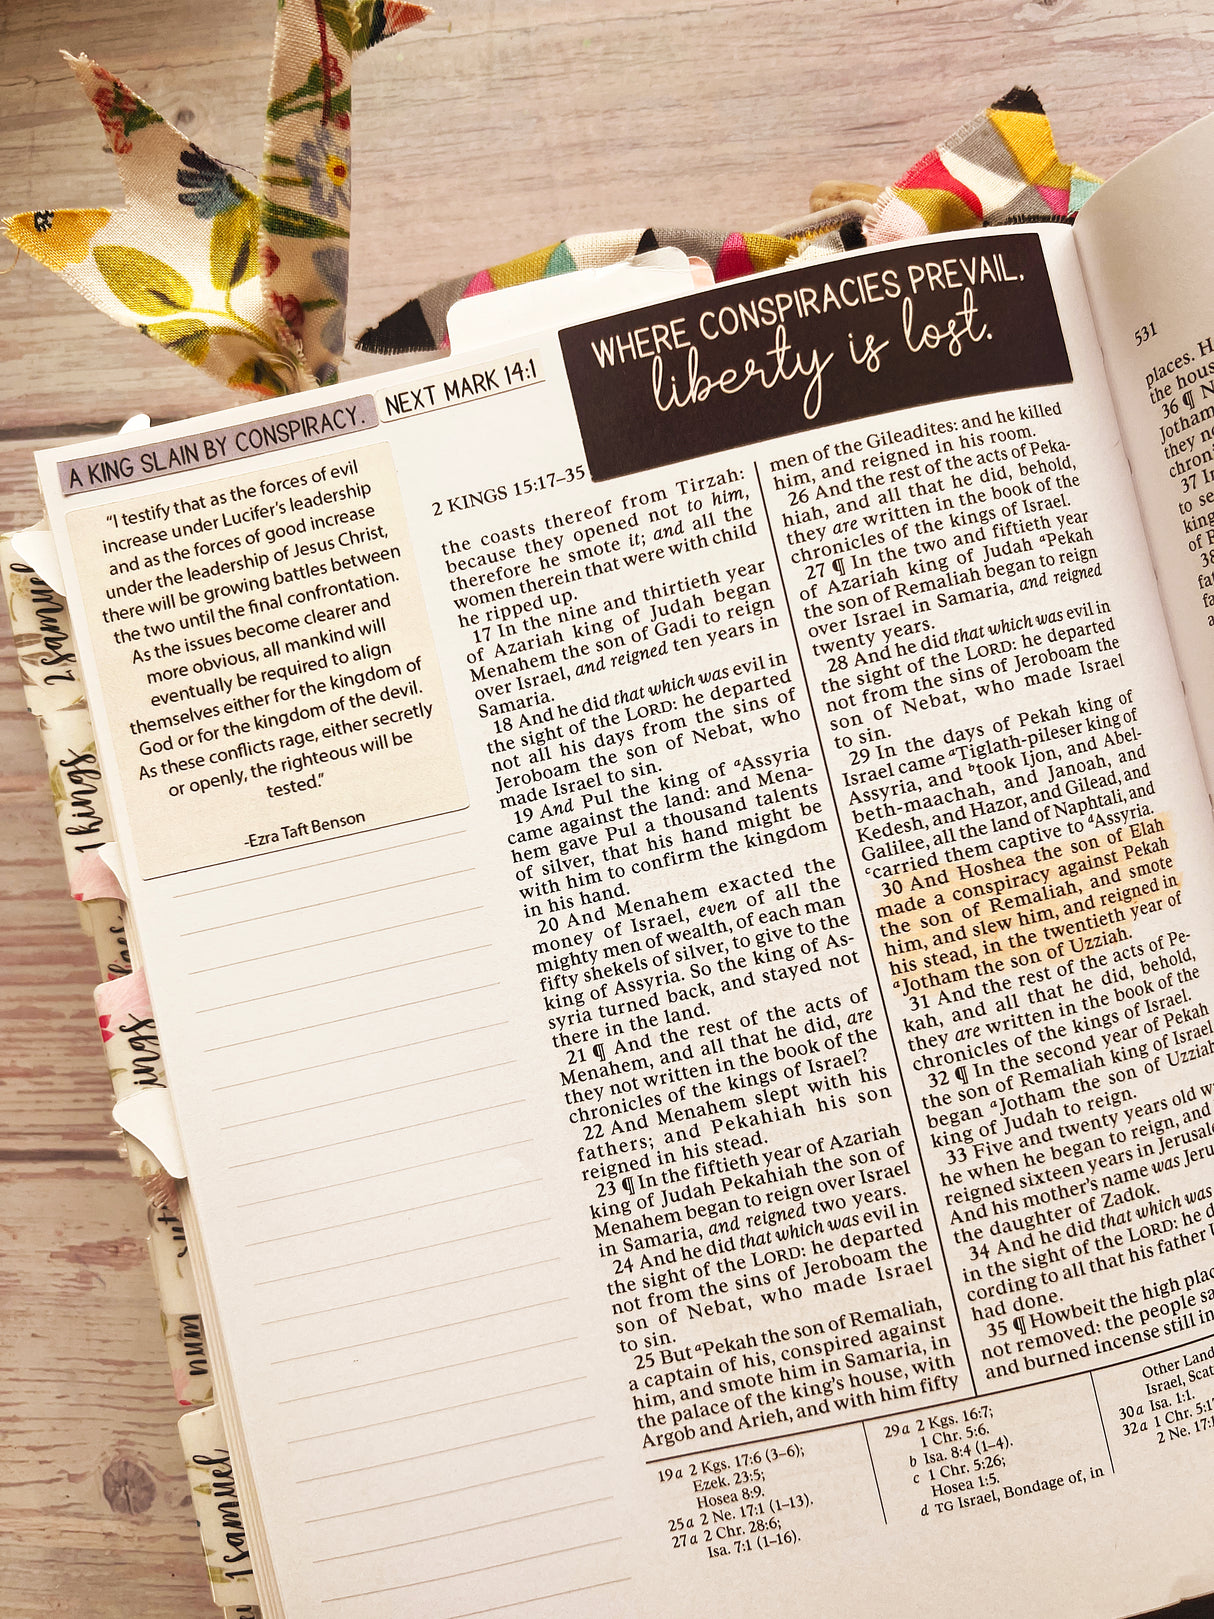 WHERE CONSPIRACIES PREVAIL,
liberty is lost.
A KING SLAIN BY CONSPIRACY.
NEXT MARK 14:1
"I testify that as the forces of evil
increase under Lucifer's leadership
and as the forces of good increase
under the leadership of Jesus Christ,
there will be growing battles between
the two until the final confrontation.
As the issues become clearer and
more obvious, all mankind will
eventually be required to align
themselves either for the kingdom of
God or for the kingdom of the devil.
As these conflicts rage, either secretly
or openly, the righteous will be
tested."
-Ezra Taft Benson
2 KINGS 15:17–35
the coasts thereof from Tirzah:
because they opened not to him,
therefore he smote it; and all the
women therein that were with child
he ripped up.
17 In the nine and thirtieth year
of Azariah king of Judah began
Menahem the son of Gadi to reign
over Israel, and reigned ten years in
Samaria.
18 And he did that which was evil in
the sight of the LORD: he departed
not all his days from the sins of
Jeroboam the son of Nebat, who
made Israel to sin.
19 And Pul the king of aAssyria
came against the land: and Mena-
hem gave Pul a thousand talents
of silver, that his hand might be
with him to confirm the kingdom
in his hand.
20 And Menahem exacted the
money of Israel, even of all the
mighty men of wealth, of each man
fifty shekels of silver, to give to the
king of Assyria. So the king of As-
syria turned back, and stayed not
there in the land.
21 ¶ And the rest of the acts of
Menahem, and all that he did, are
they not written in the book of the
chronicles of the kings of Israel?
22 And Menahem slept with his
fathers; and Pekahiah his son
reigned in his stead.
23 ¶ In the fiftieth year of Azariah
king of Judah Pekahiah the son of
Menahem began to reign over Israel
in Samaria, and reigned two years.
24 And he did that which was evil in
the sight of the LORD: he departed
not from the sins of Jeroboam the
son of Nebat, who made Israel
to sin.
25 But aPekah the son of Remaliah,
a captain of his, conspired against
him, and smote him in Samaria, in
the palace of the king's house, with
Argob and Arieh, and with him fifty
men of the Gileadites: and he killed
him, and reigned in his room.
26 And the rest of the acts of Peka-
hiah, and all that he did, behold,
they are written in the book of the
chronicles of the kings of Israel.
27 ¶ In the two and fiftieth year
of Azariah king of Judah aPekah
the son of Remaliah began to reign
over Israel in Samaria, and reigned
twenty years.
28 And he did that which was evil in
the sight of the LORD: he departed
not from the sins of Jeroboam the
son of Nebat, who made Israel
to sin.
29 In the days of Pekah king of
Israel came aTiglath-pileser king of
Assyria, and btook Ijon, and Abel-
beth-maachah, and Janoah, and
Kedesh, and Hazor, and Gilead, and
Galilee, all the land of Naphtali, and
ccarried them captive to dAssyria.
30 And Hoshea the son of Elah
made a conspiracy against Pekah
the son of Remaliah, and smote
him, and slew him, and reigned in
his stead, in the twentieth year of
aJotham the son of Uzziah.
31 And the rest of the acts of Pe-
kah, and all that he did, behold,
they are written in the book of the
chronicles of the kings of Israel.
32 ¶ In the second year of Pekah
the son of Remaliah king of Israel
began aJotham the son of Uzziah
king of Judah to reign.
33 Five and twenty years old w
he when he began to reign, and
reigned sixteen years in Jerusale
And his mother's name was Jeru
the daughter of Zadok.
34 And he did that which was
in the sight of the LORD: he d
cording to all that his father
had done.
35 ¶ Howbeit the high plac
not removed: the people sa
and burned incense still in
19a 2 Kgs. 17:6 (3–6);
Ezek. 23:5;
Hosea 8:9.
25a 2 Ne. 17:1 (1–13).
27a 2 Chr. 28:6;
Isa. 7:1 (1–16).
29a 2 Kgs. 16:7;
1 Chr. 5:6.
b Isa. 8:4 (1–4).
c 1 Chr. 5:26;
Hosea 1:5.
d TG Israel, Bondage of, in
Other Land
Israel, Scat
30a Isa. 1:1.
32a 1 Chr. 5:17
2 Ne. 17:1
531
places. H
the hous
36 ¶ N
Jotham
they no
chroni
37 In
to se
king
of R
38
fat
fa
a
2 Samuel
1 kings
ings
num
1 Samuel